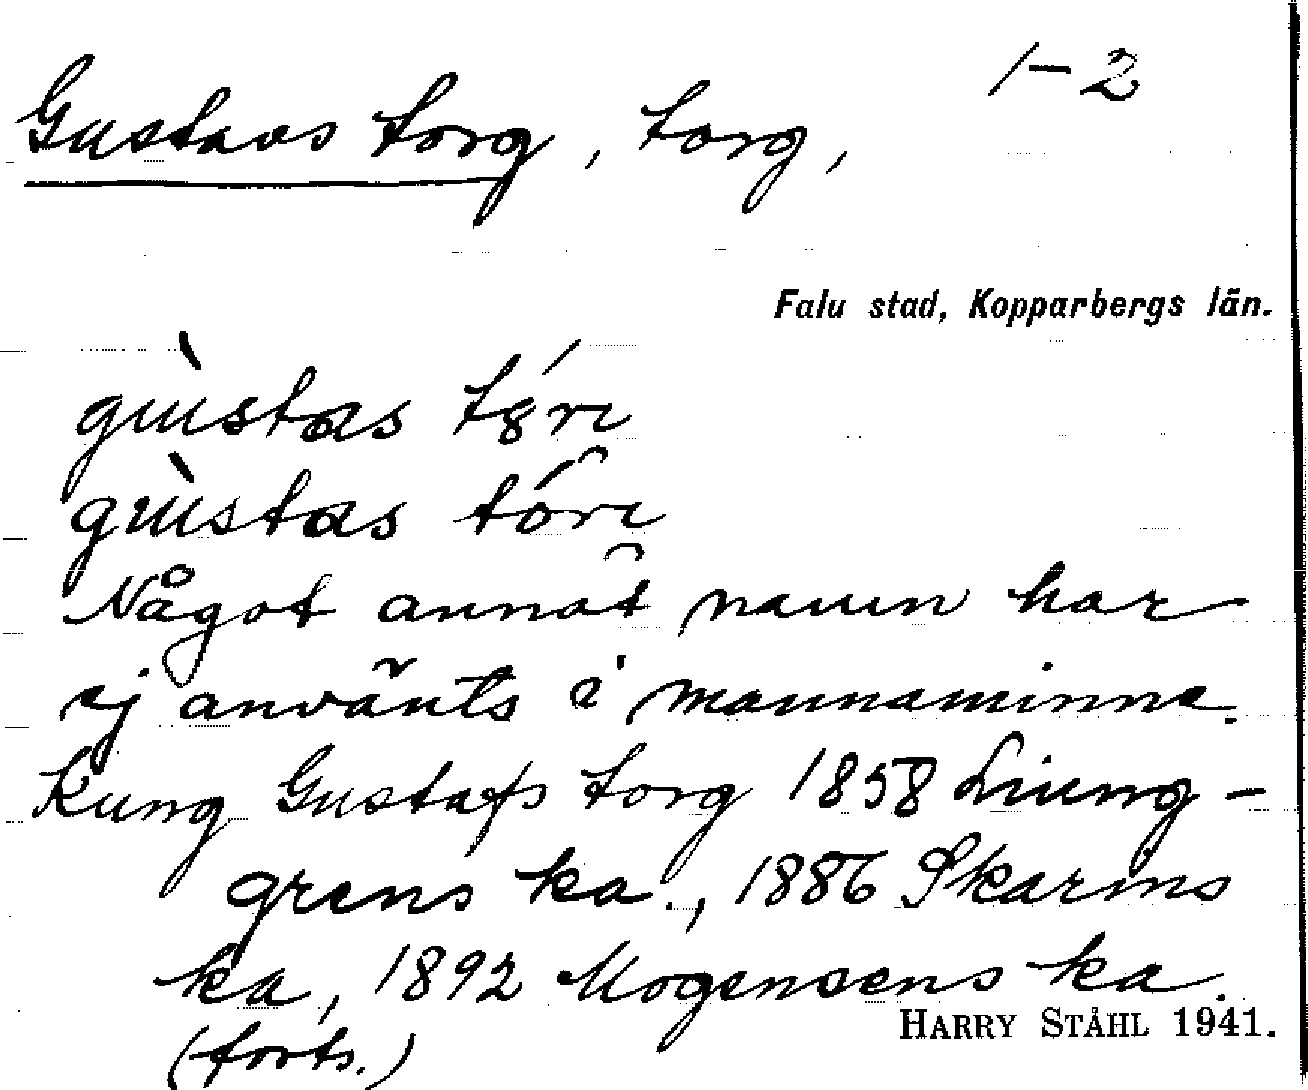 1-2
Gustavs torg, torg,
Falu stad, Kopparbergs län.
gùstas
gùstas
Något annat namn har
ej använts i mannaminne.
Kung Gustafs torg 1858 Ljung-
grens ka., 1886 Skarins
ka, 1892 Mogensens ka.
HARRY STÅHL 1941.
(forts.)